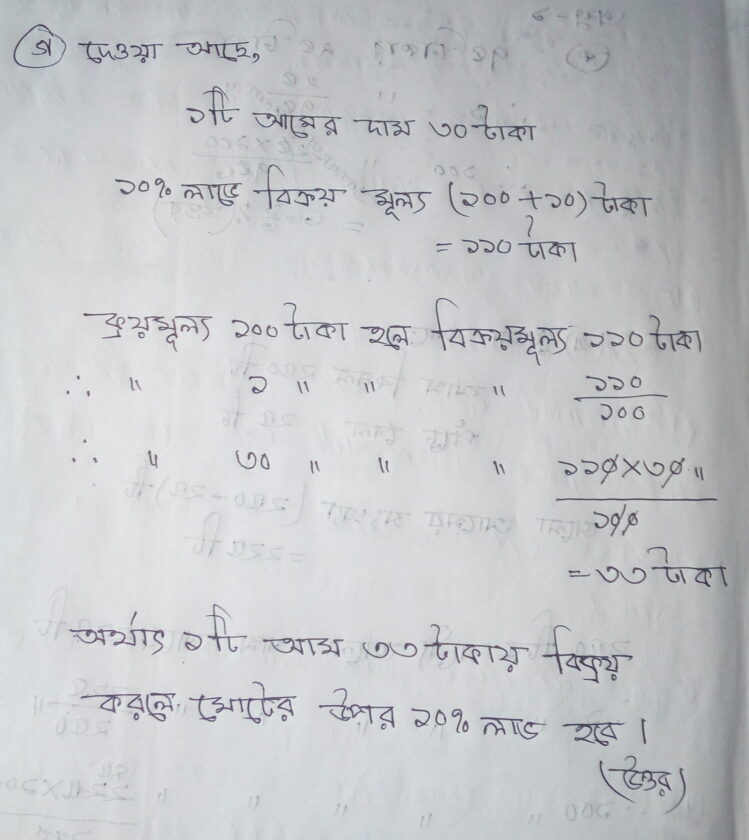 গ) দেওয়া আছে,
১টি আমের দাম ৩০ টাকা
১০% লাভে বিক্রয় মূল্য (১০০+১০) টাকা
= ১১০ টাকা
ক্রয়মূল্য ১০০ টাকা হলে বিক্রয়মূল্য ১১০ টাকা
∴ " ১ " " " ১১০
১০০
∴ " ৩০ " " " ১১০×৩০ "
১০০
= ৩৩ টাকা
অর্থাৎ ১টি আম ৩৩ টাকায় বিক্রয়
করলে মোটের উপর ১০% লাভ হবে।
(উত্তর)